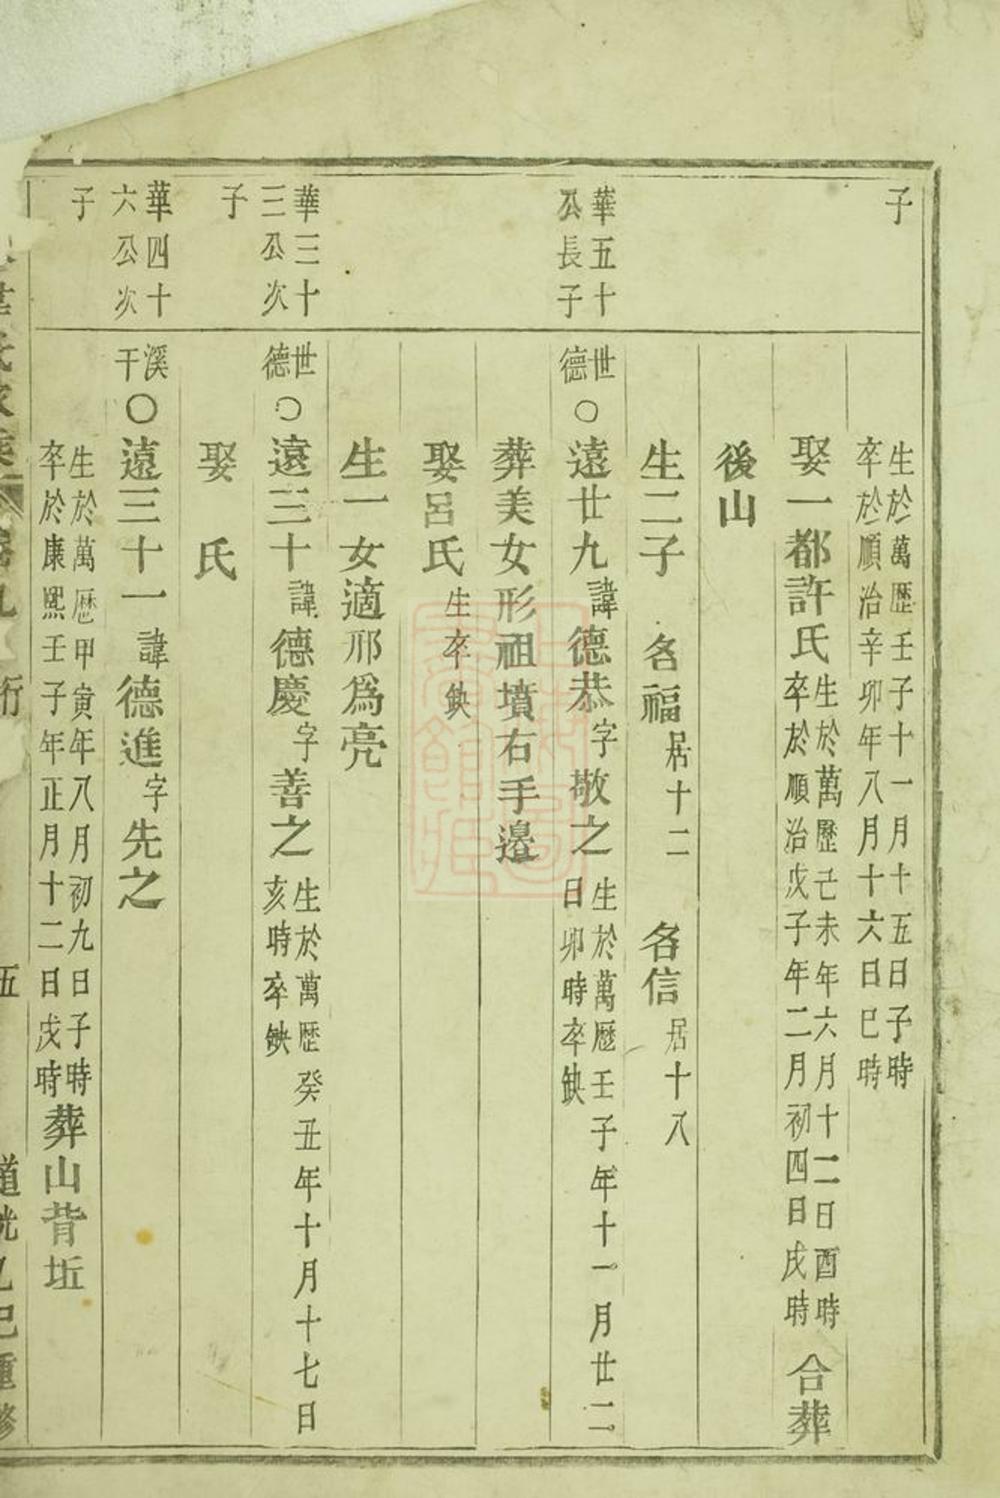 子
生於萬歷壬子十一月十五日子時
卒於順治辛卯年八月十六日巳時
娶一都許氏
生於萬歷己未年六月十二日酉時
卒於順治戊子年二月初四日戌時
合葬
後山
生二子 各福居十二 各信居十八
華五十
公長子
世
德
○遠廿九諱德恭字敬之
生於萬歷壬子年十一月廿二
日卯時卒缺
葬美女形祖墳右手邊
娶呂氏生卒缺
生一女適邢為亮
華三十
三公次
子
世
德
○遠三十諱德慶字善之
生於萬歷癸丑年十月十七日
亥時卒缺
娶 氏
華四十
六公次
子
溪
干
○遠三十一諱德進字先之
生於萬歷甲寅年八月初九日子時
卒於康熙壬子年正月十二日戌時
葬山背坵
氏家乘
卷九
行
五
道光乙巳重修